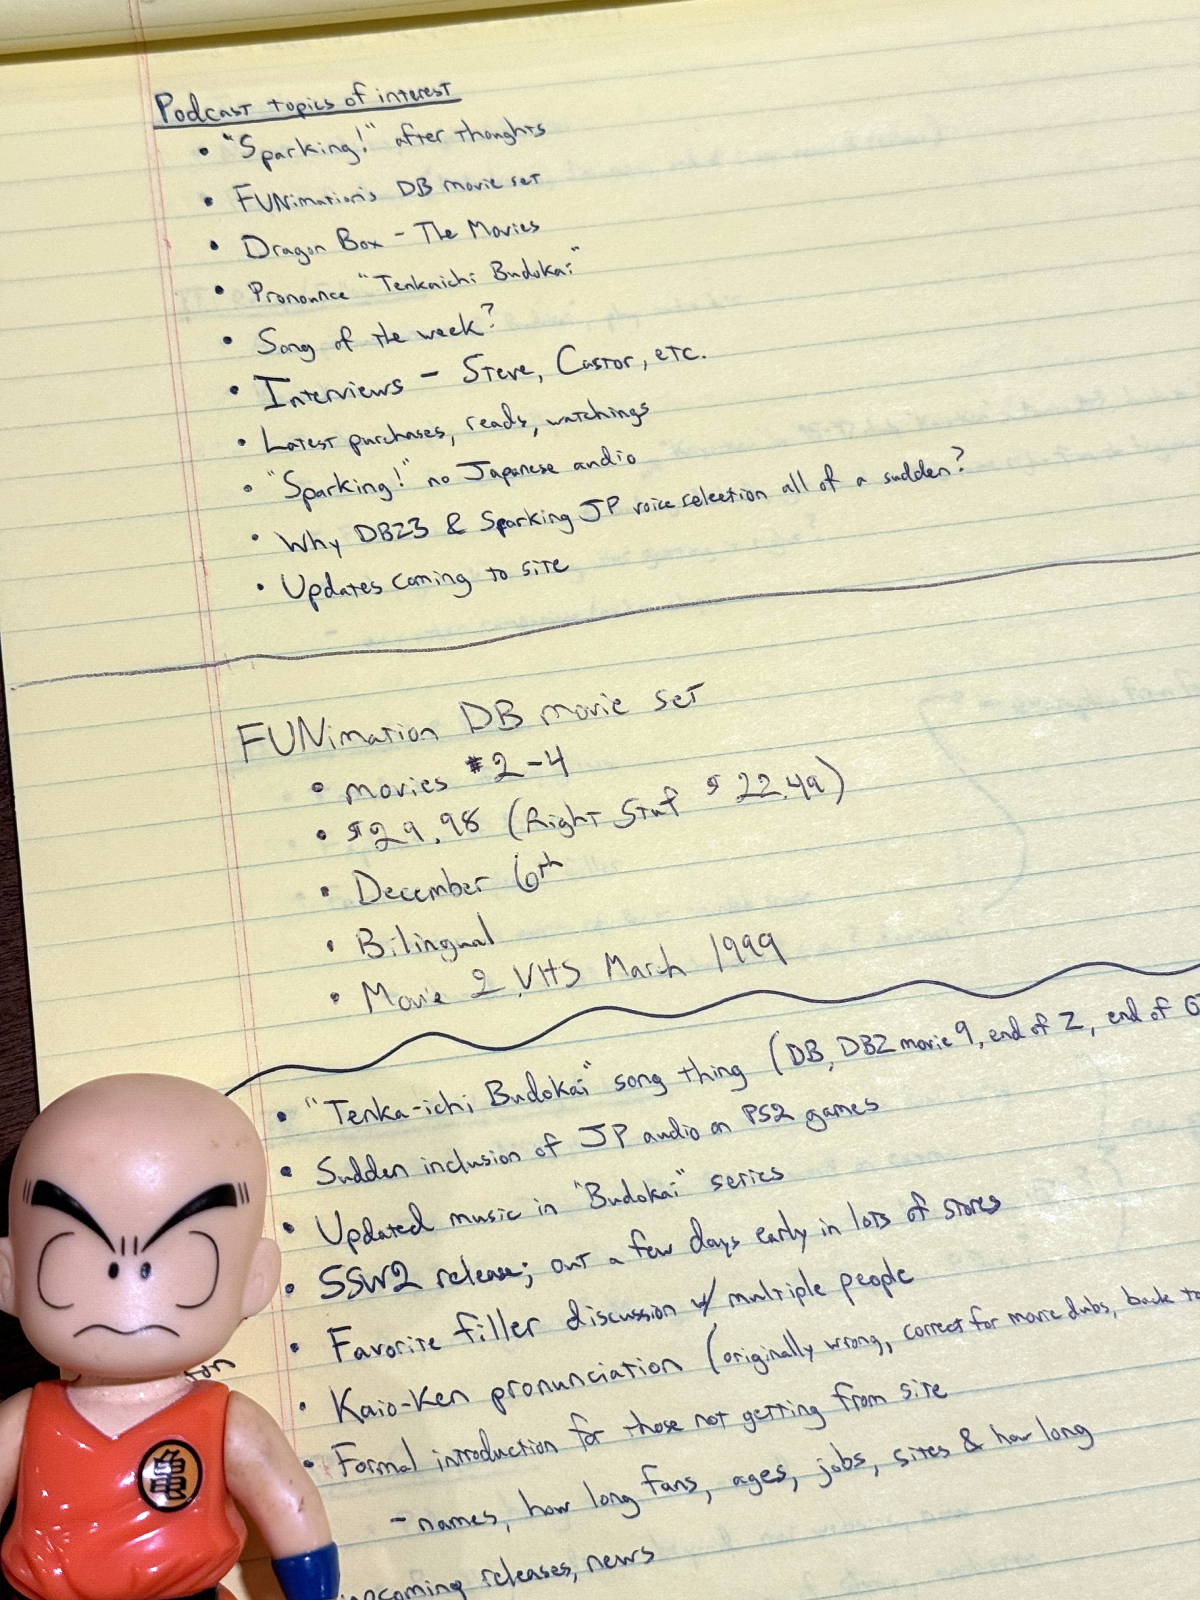 Podcast topics of interest
• "Sparking!" after thoughts
• FUNimation's DB movie set
• Dragon Box - The Movies
• Pronounce "Tenkaichi Budokai"
• Song of the week?
• Interviews - Steve, Castor, etc.
• Latest purchases, reads, watchings
• "Sparking!" no Japanese audio
• Why DBZ3 & Sparking JP voice selection all of a sudden?
• Updates coming to site
FUNimation DB movie set
• movies #2-4
• $29.98 (Right Stuf $22.49)
• December 6th
• Bilingual
• Movie 2 VHS March 1999
• "Tenka-ichi Budokai" song thing (DB, DBZ movie 9, end of Z, end of
• Sudden inclusion of JP audio on PS2 games
• Updated music in "Budokai" series
• SSW2 release; out a few days early in lots of stores
• Favorite filler discussion w/ multiple people
• Kaio-Ken pronunciation (originally wrong, correct for movie dubs, back to
• Formal introduction for those not getting from site
- names, how long fans, ages, jobs, sites & how long
upcoming releases, news
亀